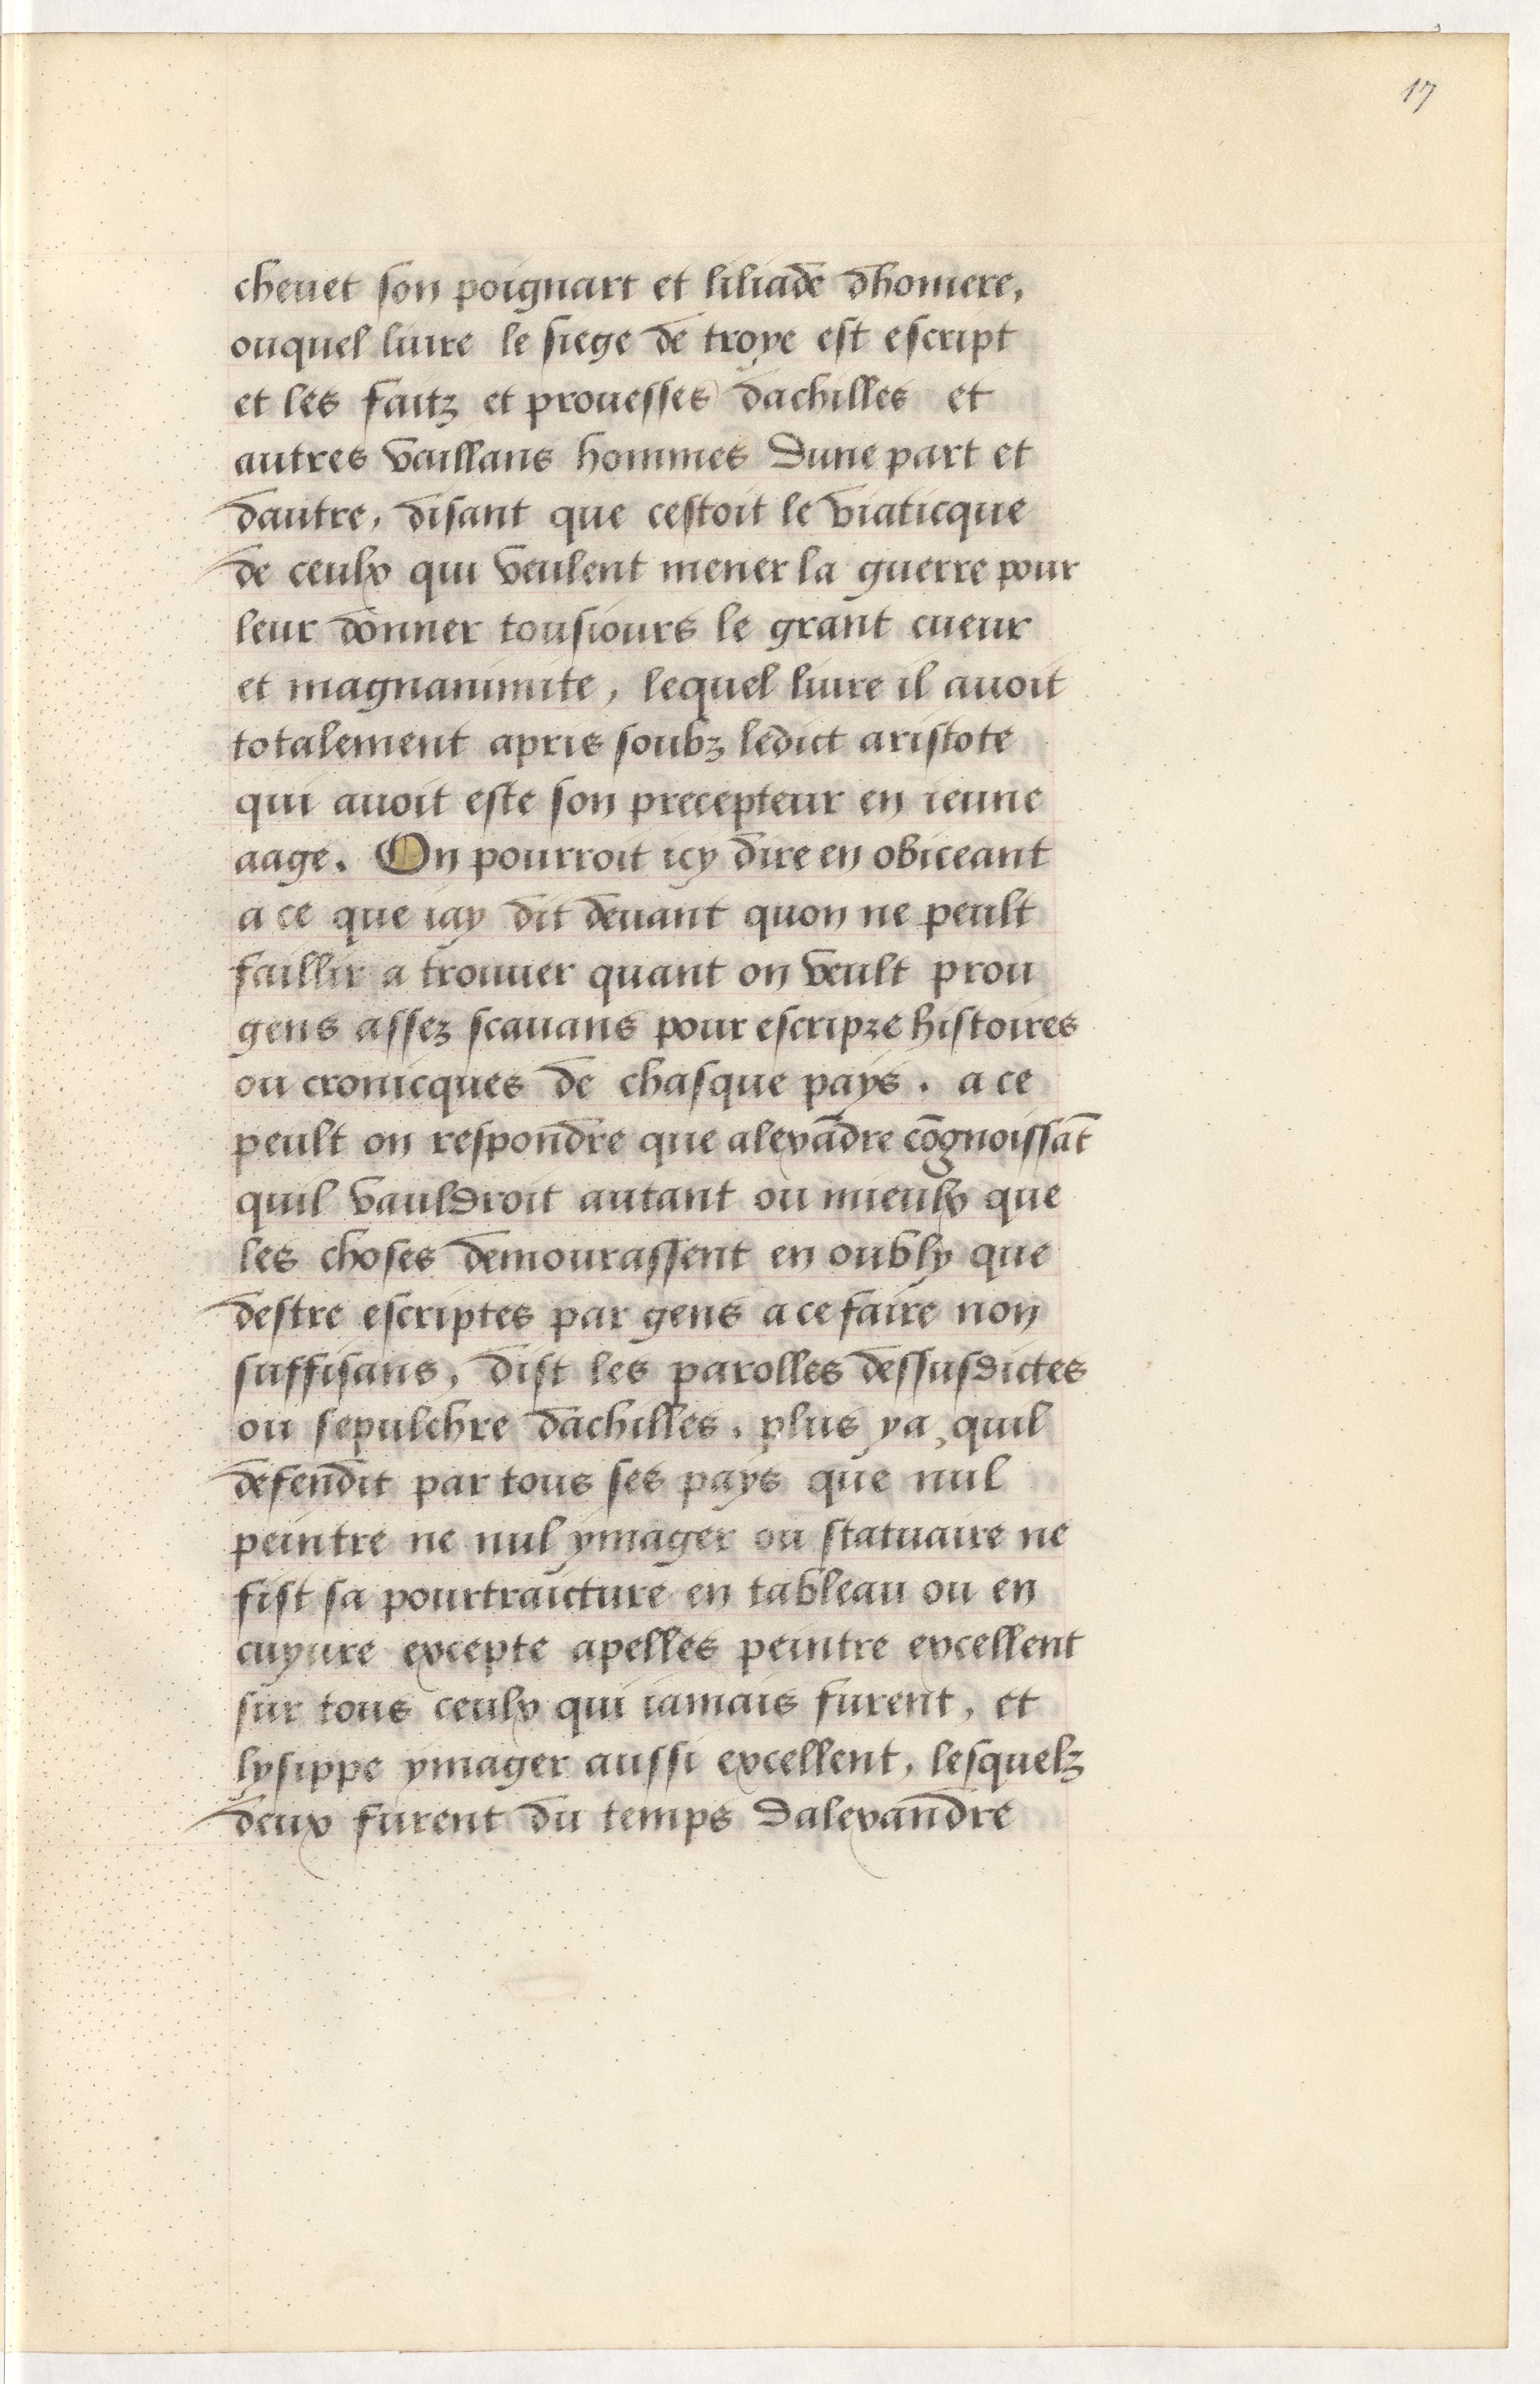 17
chevet son poignart et liliade dhomere,
ouquel livre le siege de troye est escript
et les faitz et prouesses dachilles et
autres vaillans hommes dune part et
dautre, disant que cestoit le viaticque
de ceulx qui veulent mener la guerre pour
leur donner tousiours le grant cueur
et magnanimite, lequel livre il avoit
totalement apris soubz ledict aristote
qui avoit este son precepteur en ieune
aage. On pourroit icy dire en obiceant
a ce que iay dit devant quon ne peult
faillir a trouver quant on veult prou
gens assez scavans pour escripre histoires
ou cronicques de chasque pays. a ce
peult on respondre que alexādre cōgnoissāt
quil vauldroit autant ou mieulx que
les choses demourassent en oubly que
destre escriptes par gens a ce faire non
suffisans, dist les parolles dessusdictes
ou sepulchre dachilles. plus ya, quil
defendit par tous ses pays que nul
peintre ne nul ymager ou statuaire ne
fist sa pourtraicture en tableau ou en
cuyure excepte apelles peintre excellent
sur tous ceulx qui iamais furent, et
lysippe ymager aussi excellent, lesquelz
deux furent du temps dalexandre